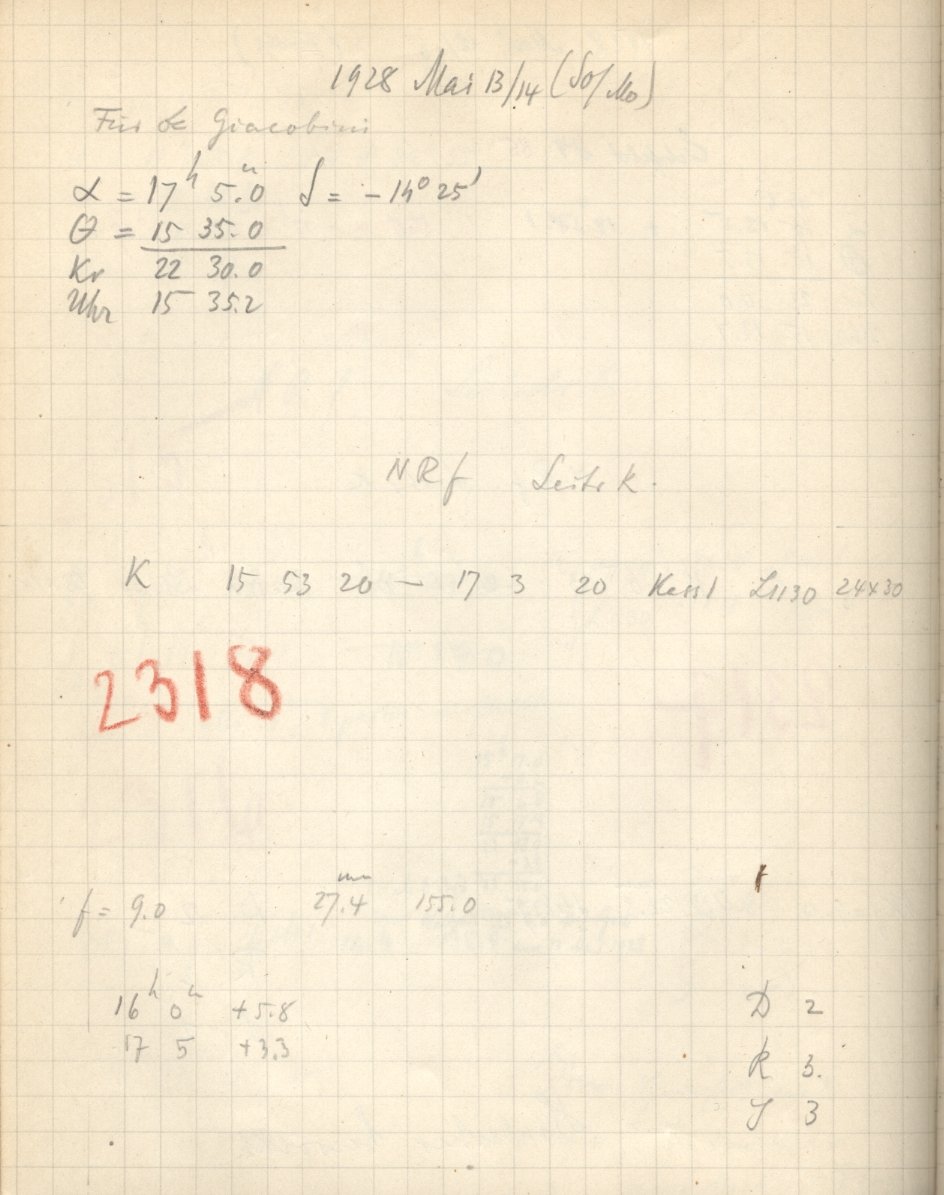 1928 Mai 13/14 (So/Mo)
Für Giacobini
α = 17h 5.m0 δ = -14° 25'
θ = 15 35.0
Kr 22 30.0
Uhr 15 35.2
NRf Leitr k.
K 15 53 20 — 17 3 20 Kassl L1130 24x30
2318
f = 9.0 27.4mm 155.0
16h 0m +5.8
17 5 +3.3
D 2
R 3.
J 3